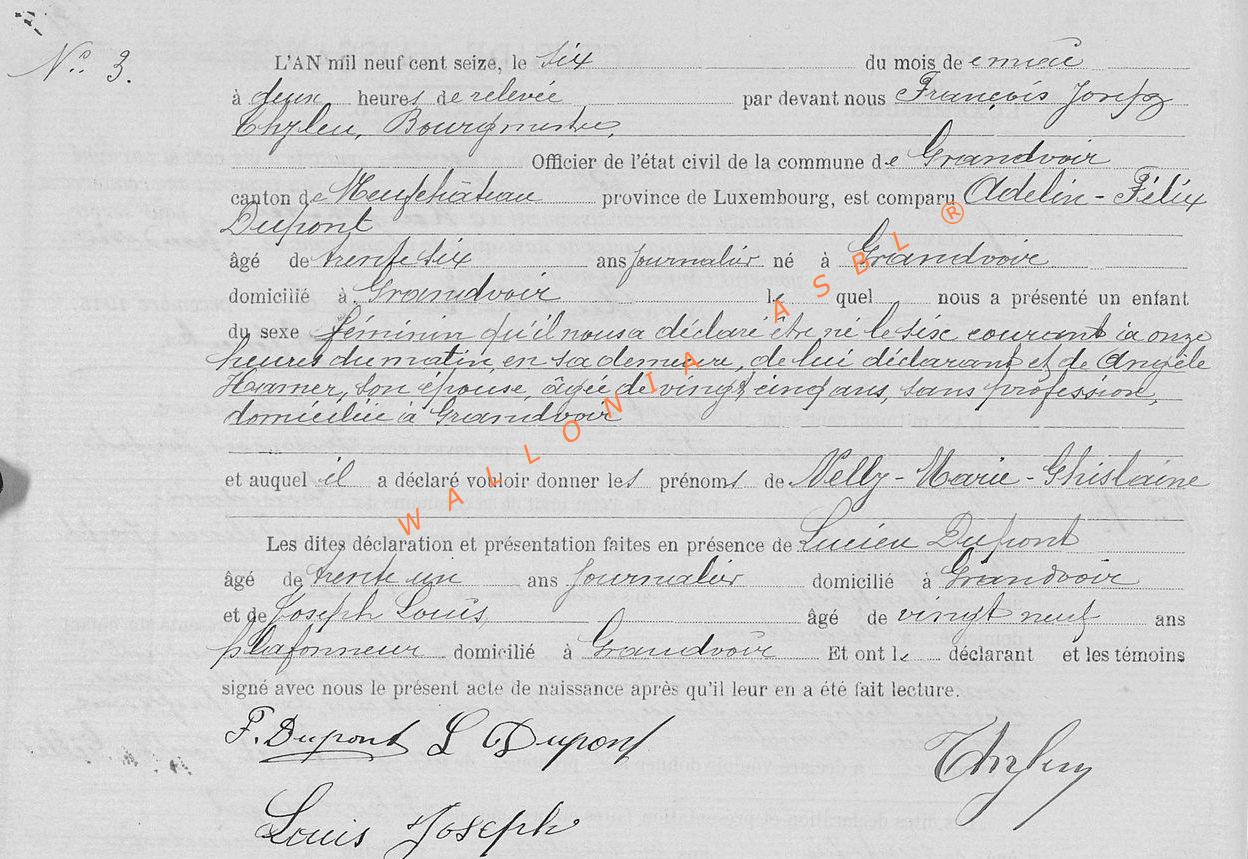 N° 3.
L'AN mil neuf cent seize, le six du mois de
à deux heures de relevée par devant nous François Joseph
Bourgmestre,
Officier de l'état civil de la commune de Grandvoir
canton de Neufchâteau province de Luxembourg, est comparu Adelin-Félix
Dupont
âgé de trente six ans journalier né à Grandvoir
domicilié à Grandvoir le quel nous a présenté un enfant
du sexe féminin qu'il nous a déclaré être né le six courant à onze
heures du matin, en sa demeure, de lui déclarant et de Angèle
Hamer, son épouse, âgée de vingt cinq ans, sans profession,
domiciliée à Grandvoir
et auquel il a déclaré vouloir donner les prénoms de Nelly-Marie-Ghislaine
Les dites déclaration et présentation faites en présence de Lucien Dupont
âgé de trente un ans journalier domicilié à Grandvoir
et de Joseph Louis, âgé de vingt neuf ans
plafonneur domicilié à Grandvoir Et ont le déclarant et les témoins
signé avec nous le présent acte de naissance après qu'il leur en a été fait lecture.
F. Dupont L Dupont
Louis Joseph
WALLONIA ASBL ®